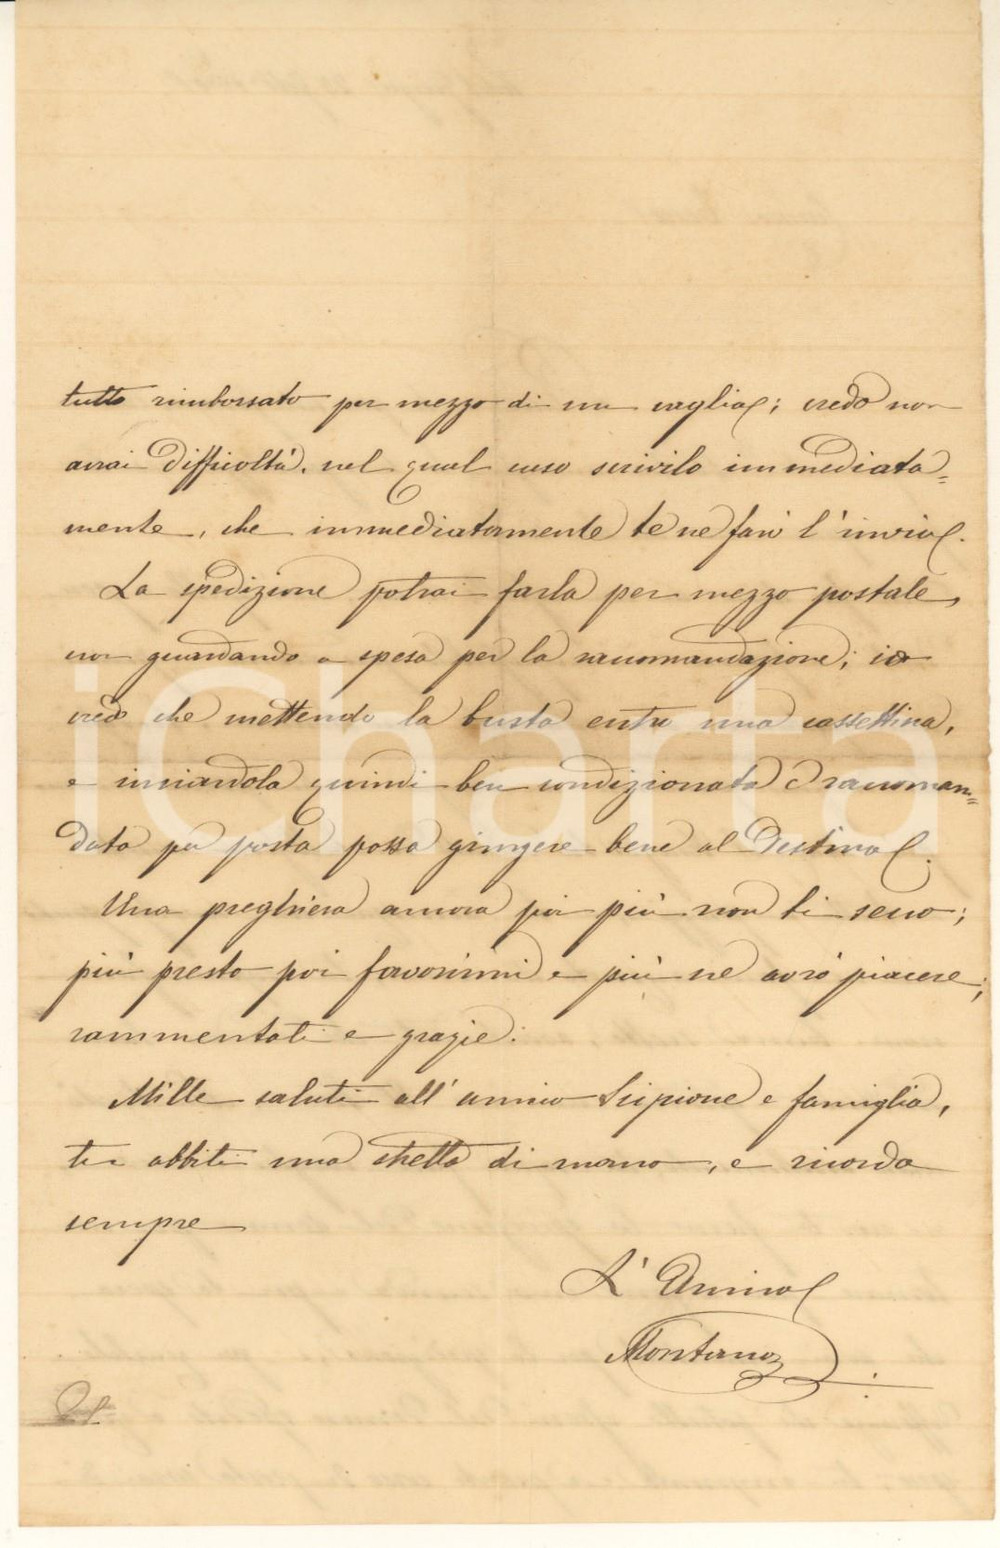 tutto rimborsato per mezzo di un vaglia; credo non
avrai difficoltà, nel qual caso scrivilo immediata=
mente, che immediatamente te ne farò l'invio.
La spedizione potrai farla per mezzo postale,
non guardando a spesa per la racomandazione; io
credo che mettendo la busta entro una cassettina,
e inviandola quindi ben condizionata e racoman=
data per posta possa giungere bene al destino.
Una preghiera ancora poi più non ti secco;
più presto poi favorirmi e più ne avrò piacere;
rammentati e grazie.
Mille saluti all'amico Scipione e famiglia,
tu abbiti una stretta di mano, e ricorda
sempre
L'Amico
Montanoz
iCharta